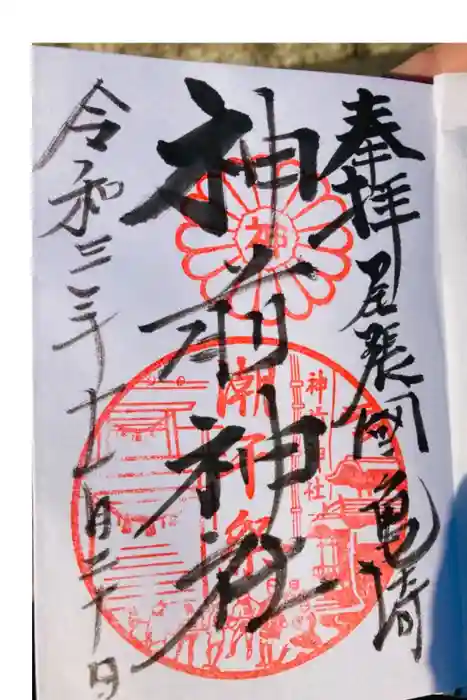 奉拝 尾張國亀崎
神前神社
令和三年十一月二十日
神
潮干祭
神前神社